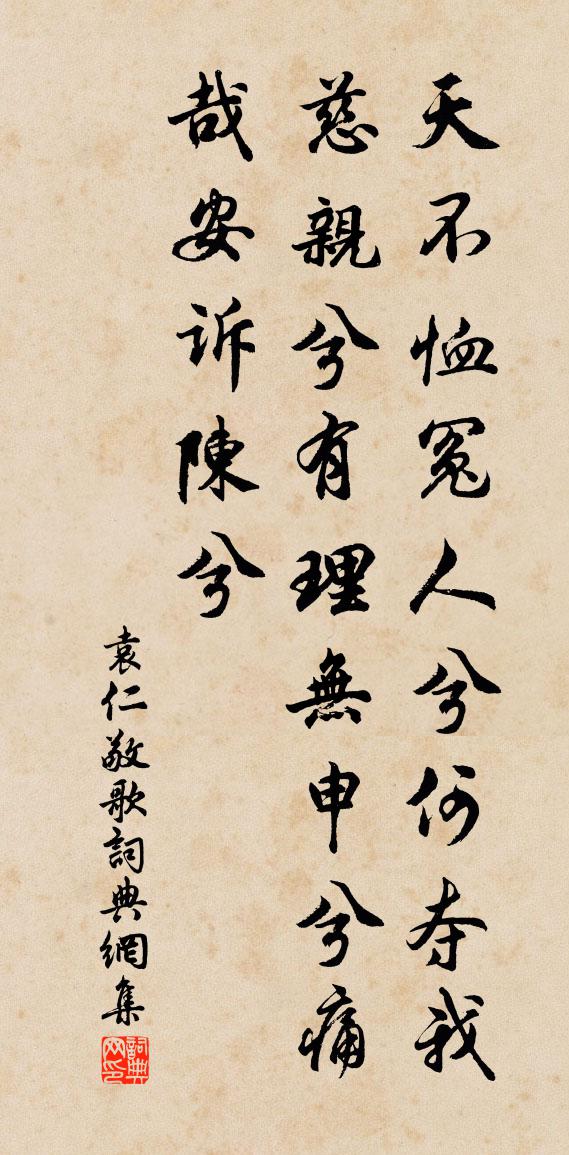 天不恤冤人兮何夺我
慈親兮有理無申兮痛
哉安诉陳兮
袁仁敬歌詞典網集
詞典网印